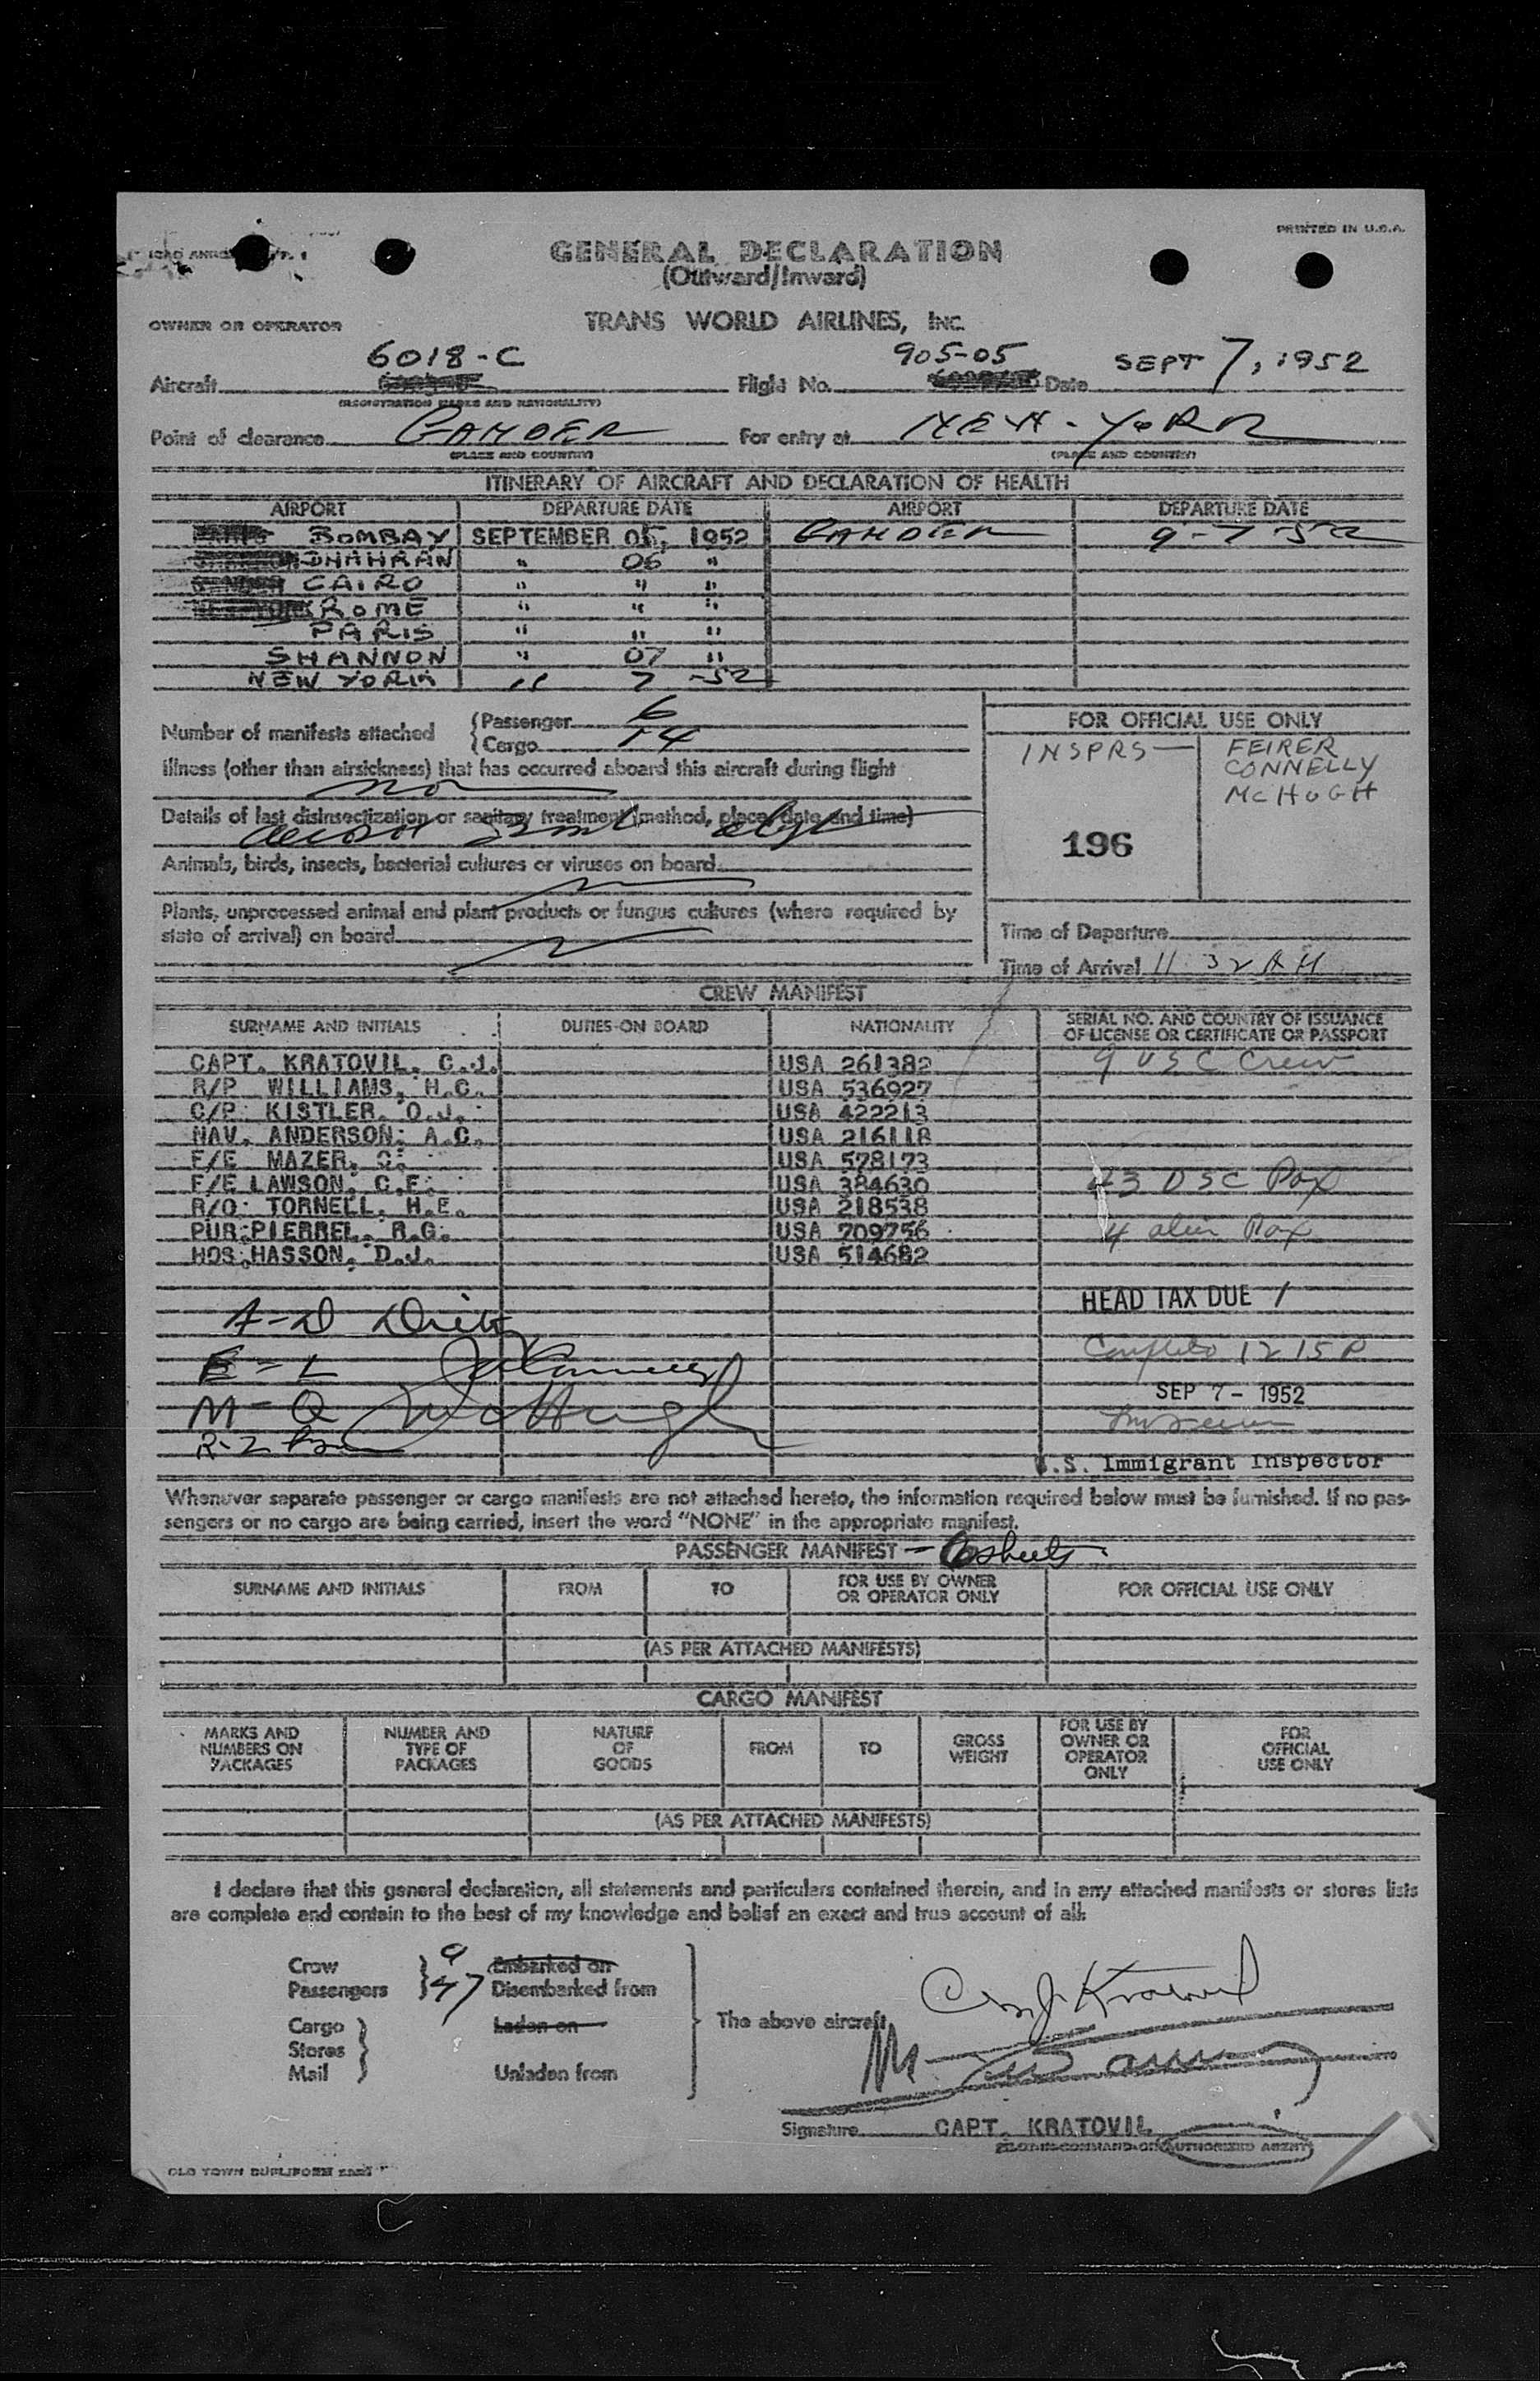 PRINTED IN U.S.A.
GENERAL DECLARATION
(Outward/Inward)
OWNER OR OPERATOR TRANS WORLD AIRLINES, INC.
6018-C 905-05 SEPT 7, 1952
Aircraft Flight No. Date
(REGISTRATION MARKS AND NATIONALITY)
Point of clearance GANDER For entry at NEW-YORK
(PLACE AND COUNTRY) (PLACE AND COUNTRY)
ITINERARY OF AIRCRAFT AND DECLARATION OF HEALTH
AIRPORT DEPARTURE DATE AIRPORT DEPARTURE DATE
BOMBAY SEPTEMBER 05, 1952 GANDER 9-7-52
DHAHRAN " 06 "
CAIRO " " "
ROME " " "
PARIS " " "
SHANNON " 07 "
NEW YORK " 7 -52
Number of manifests attached { Passenger 6
Cargo 14
FOR OFFICIAL USE ONLY
INSPRS— FEIRER
CONNELLY
McHUGH
196
Illness (other than airsickness) that has occurred aboard this aircraft during flight
no
Details of last disinsectization or sanitary treatment (method, place, date and time)
Animals, birds, insects, bacterial cultures or viruses on board
Plants, unprocessed animal and plant products or fungus cultures (where required by
state of arrival) on board
Time of Departure
Time of Arrival 11 32 AM
CREW MANIFEST
SURNAME AND INITIALS DUTIES ON BOARD NATIONALITY SERIAL NO. AND COUNTRY OF ISSUANCE
OF LICENSE OR CERTIFICATE OR PASSPORT
CAPT. KRATOVIL, C.J. USA 261382 9 USC Crew
R/P WILLIAMS, H.C. USA 536927
C/P KISTLER, O.J. USA 422213
NAV. ANDERSON, A.C. USA 216118
F/E MAZER, S. USA 578173
F/E LAWSON, C.E. USA 384630 43 USC Pax
R/O TORNELL, H.E. USA 218538
PUR. PIERREL, R.G. USA 709756 4 alien Pax
HOS. HASSON, D.J. USA 514682
HEAD TAX DUE 1
A-D
E-L
M-Q McHugh
R-Z
Complete 12 15 P
SEP 7 - 1952
U.S. Immigrant Inspector
Whenever separate passenger or cargo manifests are not attached hereto, the information required below must be furnished. If no pas-
sengers or no cargo are being carried, insert the word "NONE" in the appropriate manifest.
PASSENGER MANIFEST - 6 sheets
SURNAME AND INITIALS FROM TO FOR USE BY OWNER
OR OPERATOR ONLY FOR OFFICIAL USE ONLY
(AS PER ATTACHED MANIFESTS)
CARGO MANIFEST
MARKS AND
NUMBERS ON
PACKAGES NUMBER AND
TYPE OF
PACKAGES NATURE
OF
GOODS FROM TO GROSS
WEIGHT FOR USE BY
OWNER OR
OPERATOR
ONLY FOR
OFFICIAL
USE ONLY
(AS PER ATTACHED MANIFESTS)
I declare that this general declaration, all statements and particulars contained therein, and in any attached manifests or stores lists
are complete and contain to the best of my knowledge and belief an exact and true account of all:
Crew 9 Embarked on
Passengers 47 Disembarked from
Cargo Laden on
Stores
Mail Unladen from
The above aircraft
C. J. Kratovil
Signature CAPT. KRATOVIL
PILOT-IN-COMMAND OR AUTHORIZED AGENT
OLD TOWN DUPLIFORM